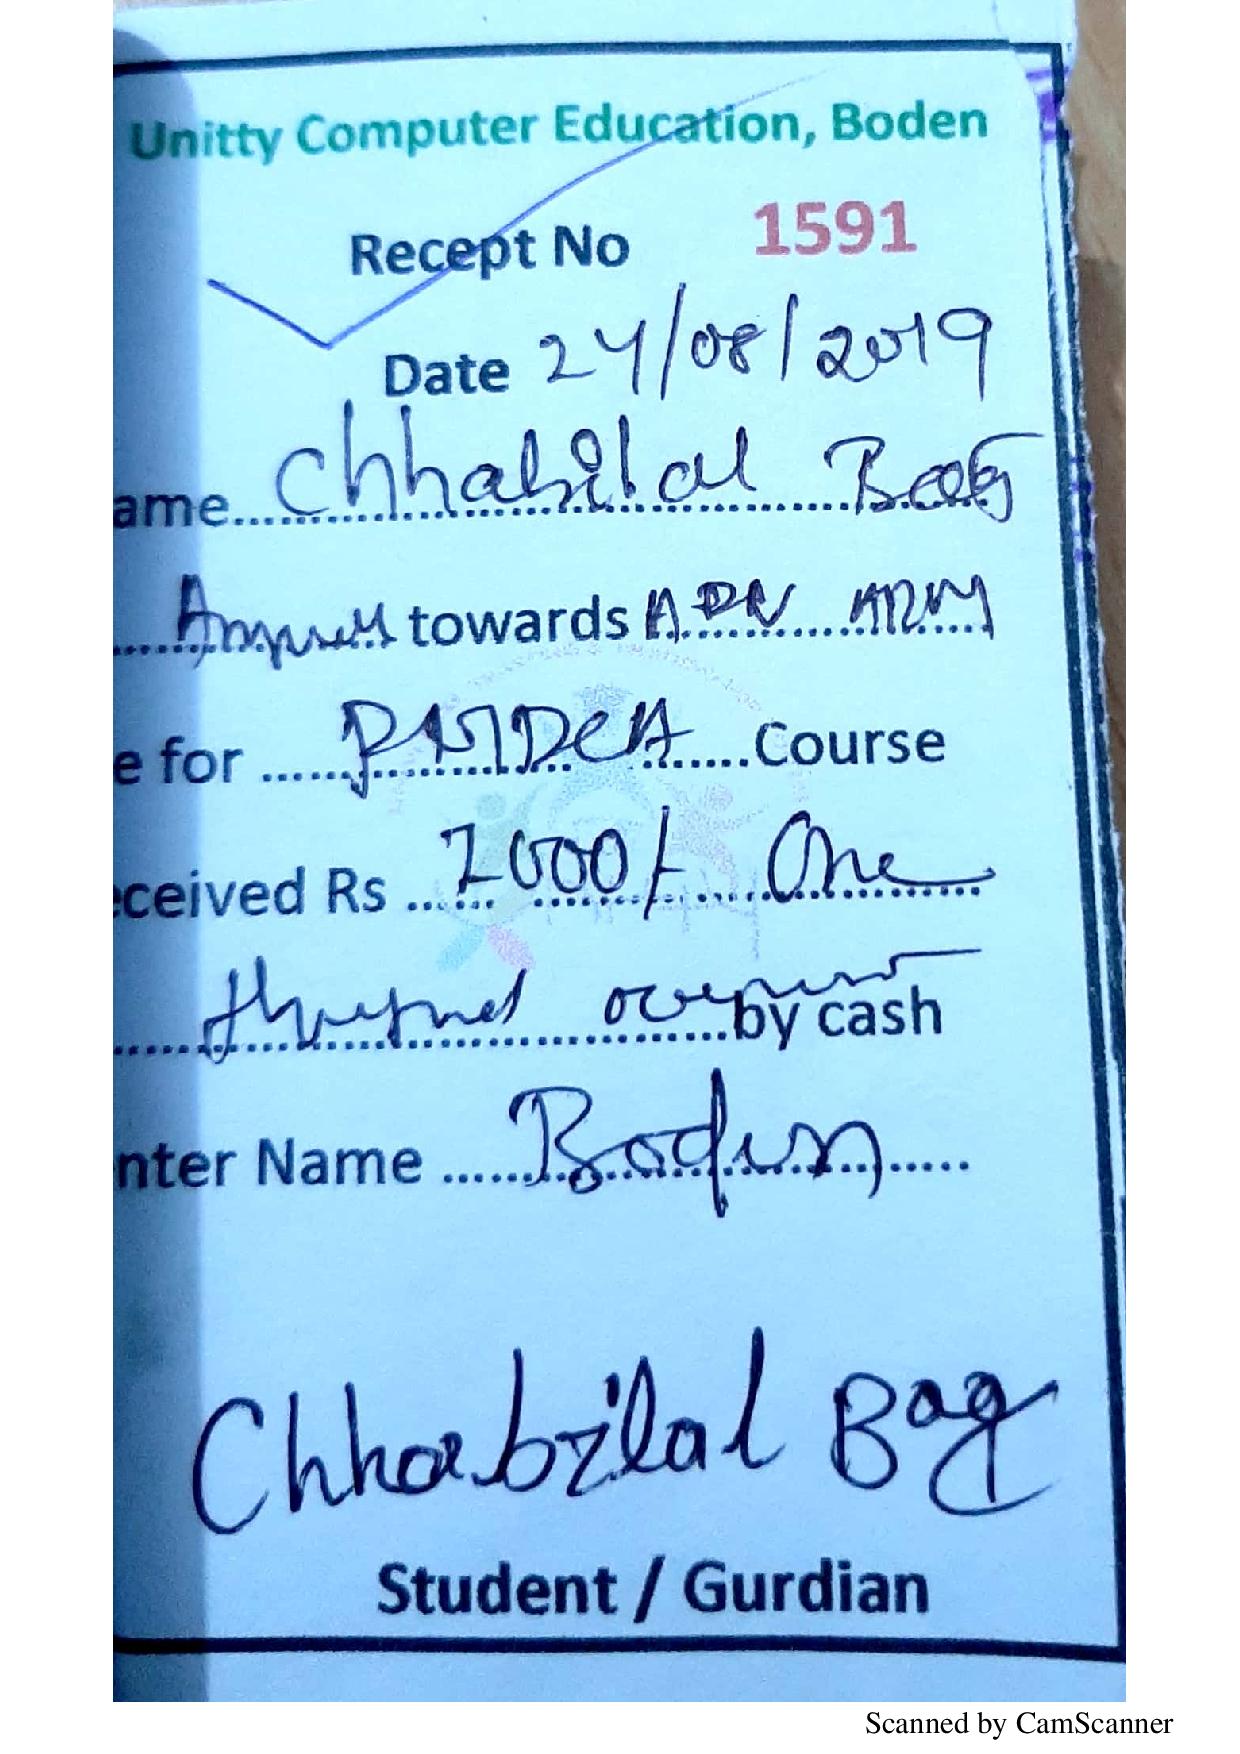 Unitty Computer Education, Boden
Recept No 1591
Date 24/08/2019
ame Chhabilal Bag
towards
e for PMDCA Course
ceived Rs 1000/- One
by cash
nter Name Boden
Chhabilal Bag
Student / Gurdian
Scanned by CamScanner